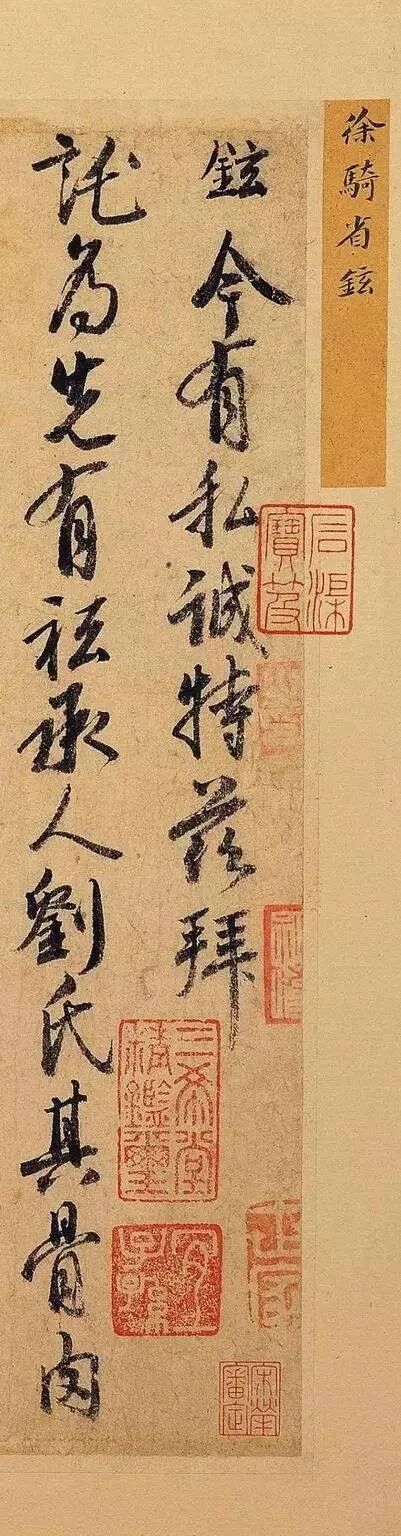 徐騎省鉉
石渠寶笈
鉉今有私誠特茲拜
三希堂精鑑璽
宜子孫
宋犖審定
託為先有祗承人劉氏其骨肉